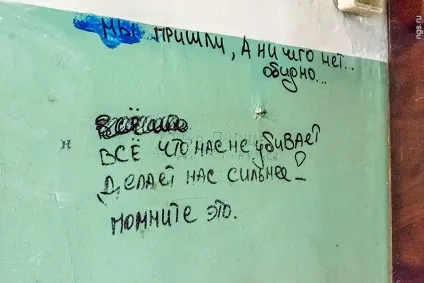 мы пришли, а ничего нет...
обидно...
всё что нас не убивает
делает нас сильнее!
помните это.
н
ngs.ru